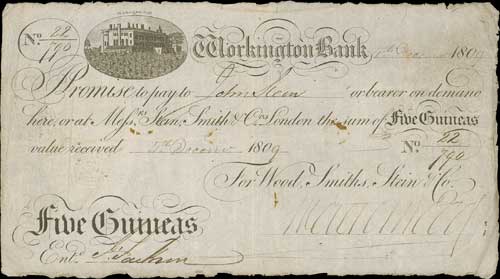 No. 22/790
Workington Bank
1809
Promise to pay to John Stein or bearer on demand
here, or at Messrs. Stein, Smith & Co. London the sum of Five Guineas
value received 5th December 1809 No. 22/790
For Wood, Smiths, Stein & Co.
Five Guineas
Entd. Jackson